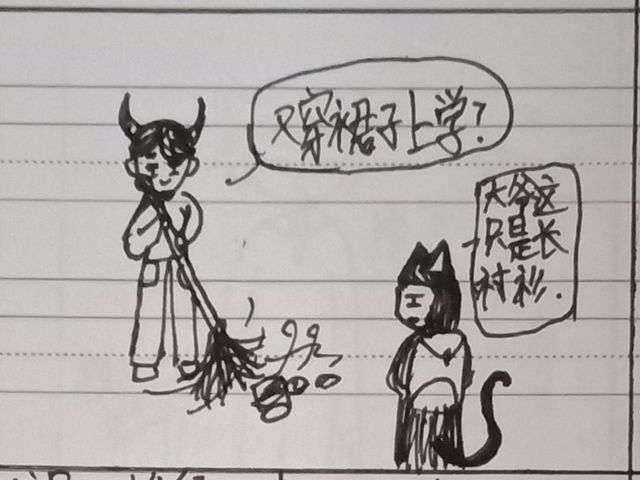 又穿裙子上学?
大爷这
只是长
衬衫.